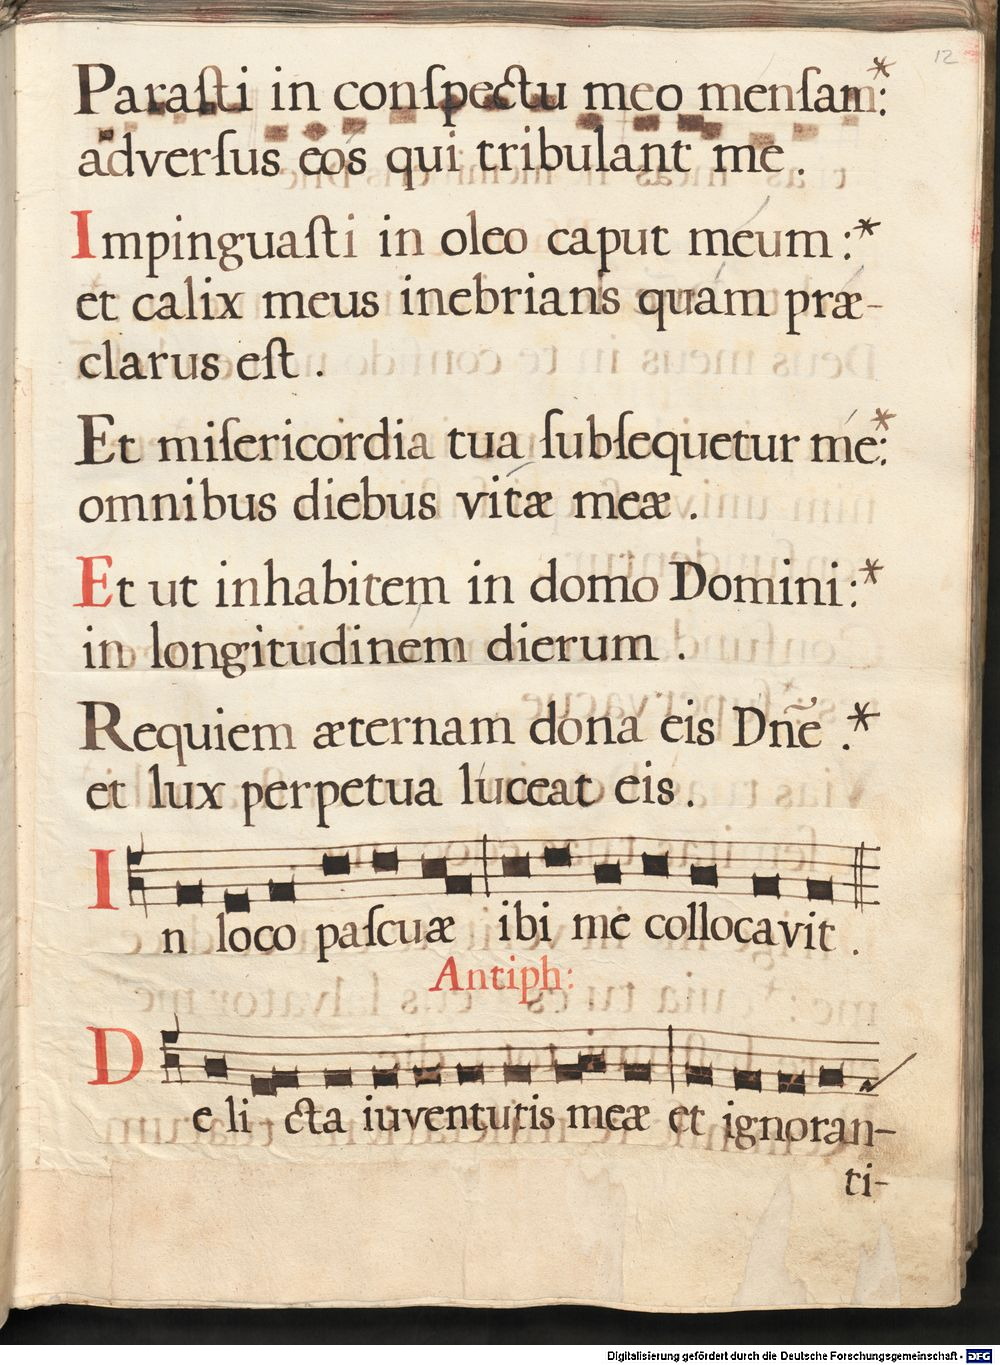 12
Paraſti in conſpectu meo menſam:*
adverſus eos qui tribulant me.
Impinguaſti in oleo caput méum:*
et calix meus inebrians quam præ-
clarus eſt.
Et miſericordia tua ſubſequetur mé:*
omnibus diebus vitæ meæ.
Et ut inhabitem in domo Domini:*
in longitudinem dierum.
Requiem æternam dona eis Dn̄e.*
et lux perpetua lúceat eis.
In loco paſcuæ ibi me collocavit.
Antiph:
De li cta iuventutis meæ et ignoran-
ti-
Digitalisierung gefördert durch die Deutsche Forschungsgemeinschaft - DFG